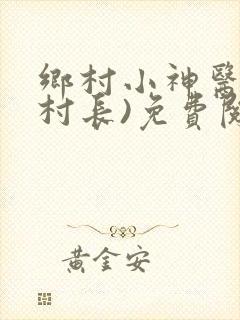 鄉村小神醫
村長)免費閱
黃金安